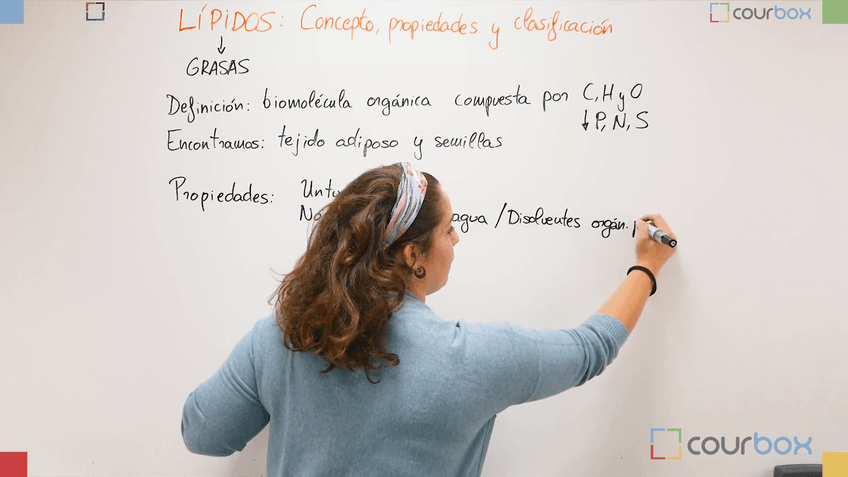 LÍPIDOS: Concepto, propiedades y clasificación
courbox
↓
GRASAS
Definición: biomolécula orgánica compuesta por C, H y O
↓ P, N, S
Encontramos: tejido adiposo y semillas
Propiedades:
agua / Disolventes orgán.
courbox